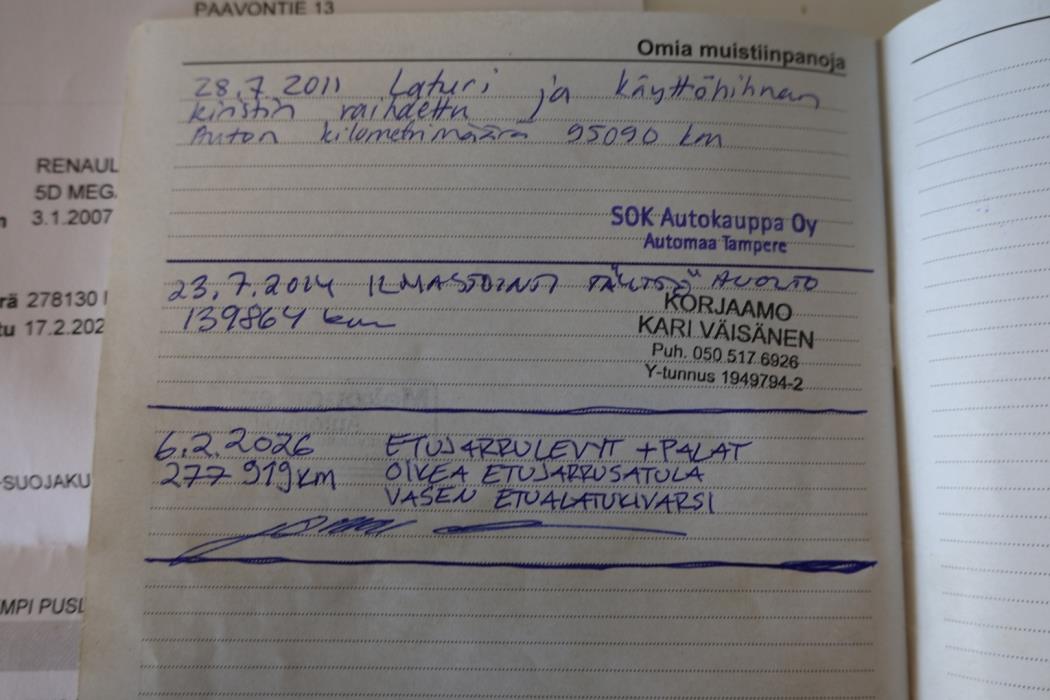 PAAVONTIE 13
Omia muistiinpanoja
28.7.2011 Laturi ja käyttöhihnan
kiristin vaihdettu
Auton kilometrimäärä 95090 km
RENAUL
5D MEG
3.1.2007
SOK Autokauppa Oy
Automaa Tampere
23.7.2014 ILMASTOINTI TÄYTTÖ HUOLTO
139864 km
rä 278130
tu 17.2.202
KORJAAMO
KARI VÄISÄNEN
Puh. 050 517 6926
Y-tunnus 1949794-2
6.2.2026 ETUJARRULEVYT + PALAT
277 919km OIKEA ETUJARRUSATULA
VASEN ETUALATUKIVARSI
-SUOJAKU
MPI PUSL